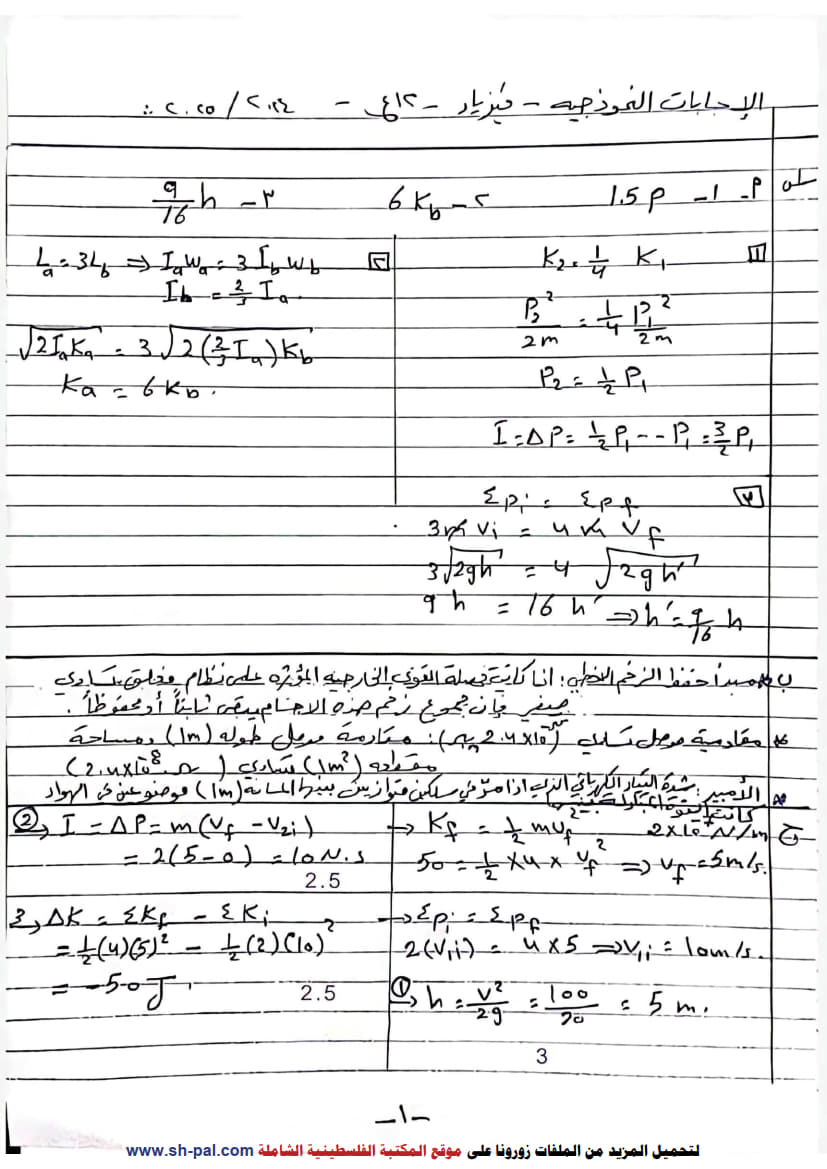 الإجابات النموذجيه - فيزياء - ١٢ع - ٢٠٢٤ / ٢٠٢٥ ::
س١ أ- ١- 1.5 P ٢- 6 K_b ٣- 9/16 h
[١] K₂ = 1/4 K₁
P₂²/2m = 1/4 P₁²/2m
P₂ = 1/2 P₁
I = ΔP = 1/2 P₁ - - P₁ = 3/2 P₁
[٢] L_a = 3L_b ⇒ I_a W_a = 3 I_b W_b
I_b = 2/3 I_a
√(2I_a K_a) = 3√(2(2/3 I_a)K_b)
K_a = 6 K_b .
[٣] Σp_i = Σp_f
3m v_i = 4 m v_f
3√(2gh) = 4 √(2gh')
9 h = 16 h' ⇒ h' = 9/16 h
ب * مبدأ حفظ الزخم الخطي : اذا كانت محصلة القوى الخارجيه المؤثره على نظام مغلق تساوي
صفر فإن مجموع زخم هذه الاجسام يبقى ثابتاً أو محفوظاً .
* مقاومية موصل تساوي (2.4×10⁻⁸ Ω.m) : مقاومة موصل طوله (1m) ومساحة
مقطعه (1m²) تساوي (2.4×10⁻⁸ Ω)
* الأمبير : شدة التيار الكهربائي الذي اذا مرّ في سلكين متوازيين بينهما مسافة (1m) موضوعين في الهواء
كانت القوة المتبادلة بينهما 2×10⁻⁷ N/m
ج → K_f = 1/2 m v_f²
50 = 1/2 × 4 × v_f² ⇒ v_f = 5 m/s.
→ Σp_i = Σp_f
2(v₁i) = 4×5 ⇒ v₁i = 10 m/s.
①, h = v²/2g = 100/20 = 5 m.
3
②, I = ΔP = m(v_f - v₂i)
= 2(5 - 0) = 10 N.s
2.5
3, ΔK = ΣK_f - ΣK_i
= 1/2(4)(5)² - 1/2(2)(10)²
= -50 J .
2.5
-١-
لتحميل المزيد من الملفات زورونا على موقع المكتبة الفلسطينية الشاملة www.sh-pal.com